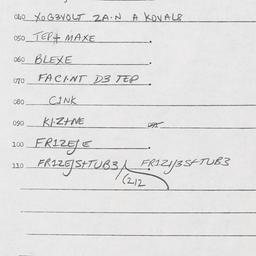 040 XOG3VOLT 2A·N A KOVAL8
050 TEP4 MAXE
060 BLEXE
070 FACI·NT D3 TEP
080 C1NK
090 K1·Z+NE
100 FR1ZEJE
110 FR1ZEJS+TUB3/ FR1ZIJ3S+TUB3
(212